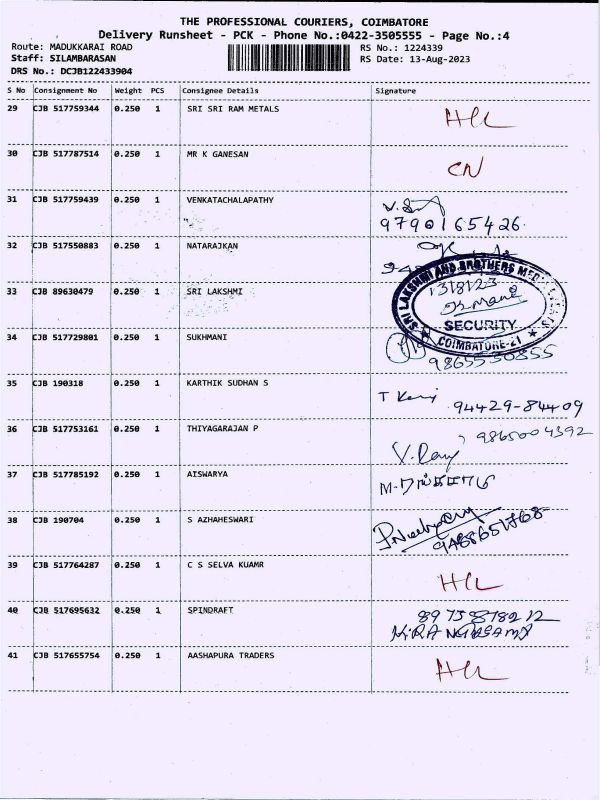 THE PROFESSIONAL COURIERS, COIMBATORE
Delivery Runsheet - PCK - Phone No.:0422-3505555 - Page No.:4
Route: MADUKKARAI ROAD RS No.: 1224339
Staff: SILAMBARASAN RS Date: 13-Aug-2023
DRS No.: DCJB122433904
S No Consignment No Weight PCS Consignee Details Signature
29 CJB 517759344 0.250 1 SRI SRI RAM METALS
30 CJB 517787514 0.250 1 MR K GANESAN CN
31 CJB 517759439 0.250 1 VENKATACHALAPATHY
9790165426
32 CJB 517550883 0.250 1 NATARAJKAN
33 CJB 89630479 0.250 1 SRI LAKSHMI
SRI LAKSHMI AND BROTHERS
SECURITY
COIMBATORE-21
34 CJB 517729801 0.250 1 SUKHMANI
35 CJB 190318 0.250 1 KARTHIK SUDHAN S
94429-84409
36 CJB 517753161 0.250 1 THIYAGARAJAN P 9865004392
37 CJB 517785192 0.250 1 AISWARYA
38 CJB 190704 0.250 1 S AZHAHESWARI
39 CJB 517764287 0.250 1 C S SELVA KUAMR
40 CJB 517695632 0.250 1 SPINDRAFT
41 CJB 517655754 0.250 1 AASHAPURA TRADERS